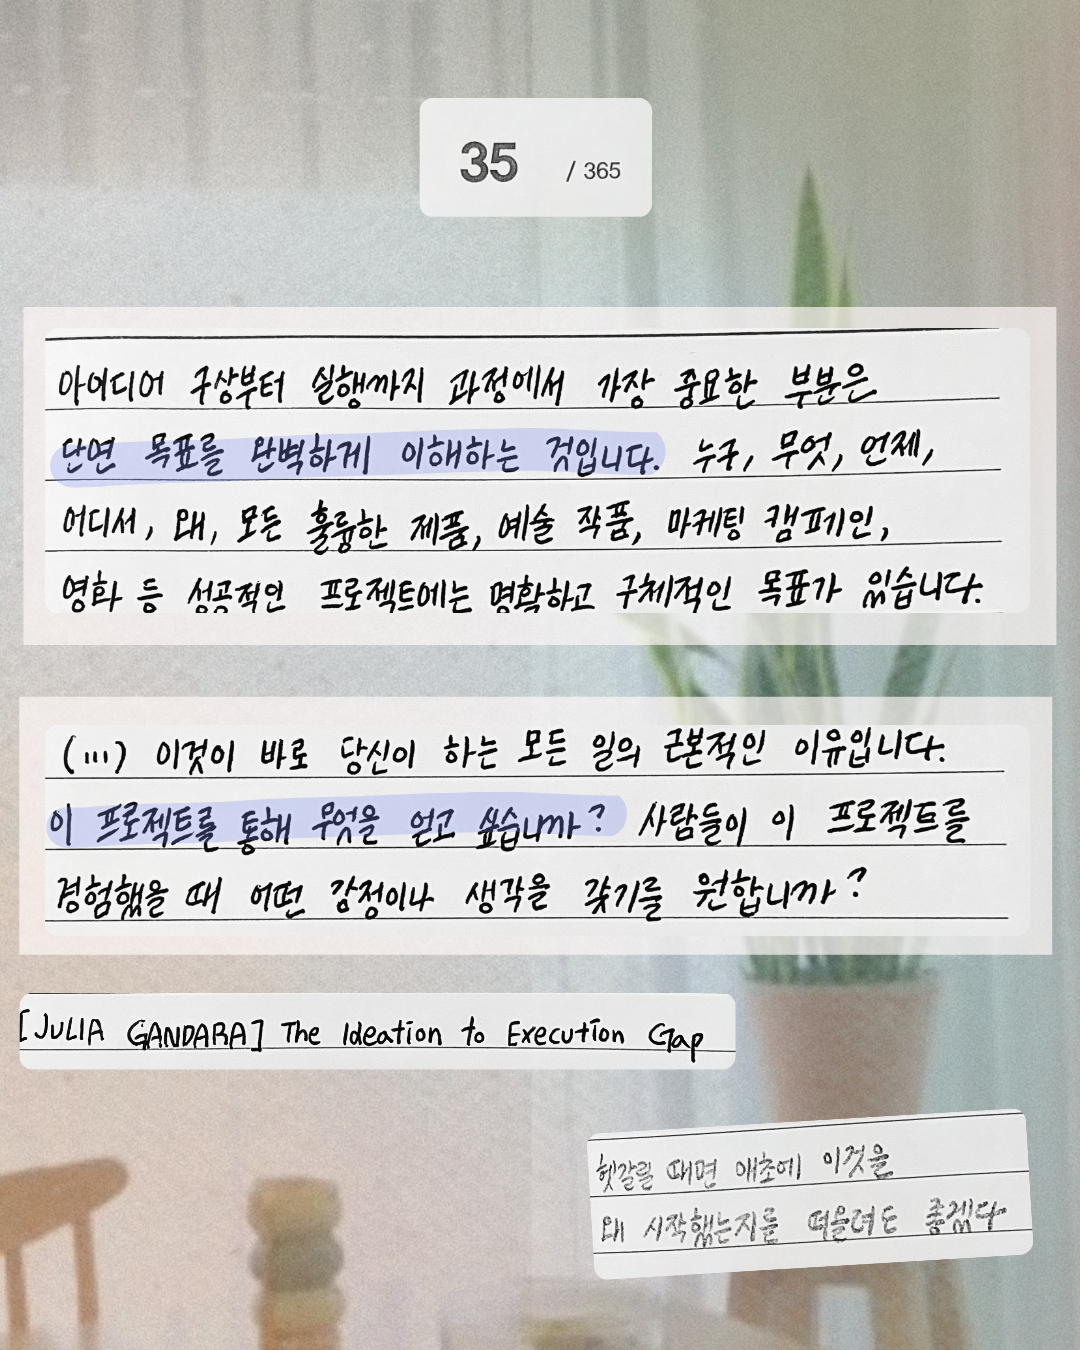 35 / 365
아이디어 구상부터 실행까지 과정에서 가장 중요한 부분은
단연 목표를 완벽하게 이해하는 것입니다. 누구, 무엇, 언제,
어디서, 왜, 모든 훌륭한 제품, 예술 작품, 마케팅 캠페인,
영화 등 성공적인 프로젝트에는 명확하고 구체적인 목표가 있습니다.
(...) 이것이 바로 당신이 하는 모든 일의 근본적인 이유입니다.
이 프로젝트를 통해 무엇을 얻고 싶습니까? 사람들이 이 프로젝트를
경험했을 때 어떤 감정이나 생각을 갖기를 원합니까?
[JULIA GANDARA] The Ideation to Execution Gap
헷갈릴 때면 애초에 이것을
왜 시작했는지를 떠올려도 좋겠다